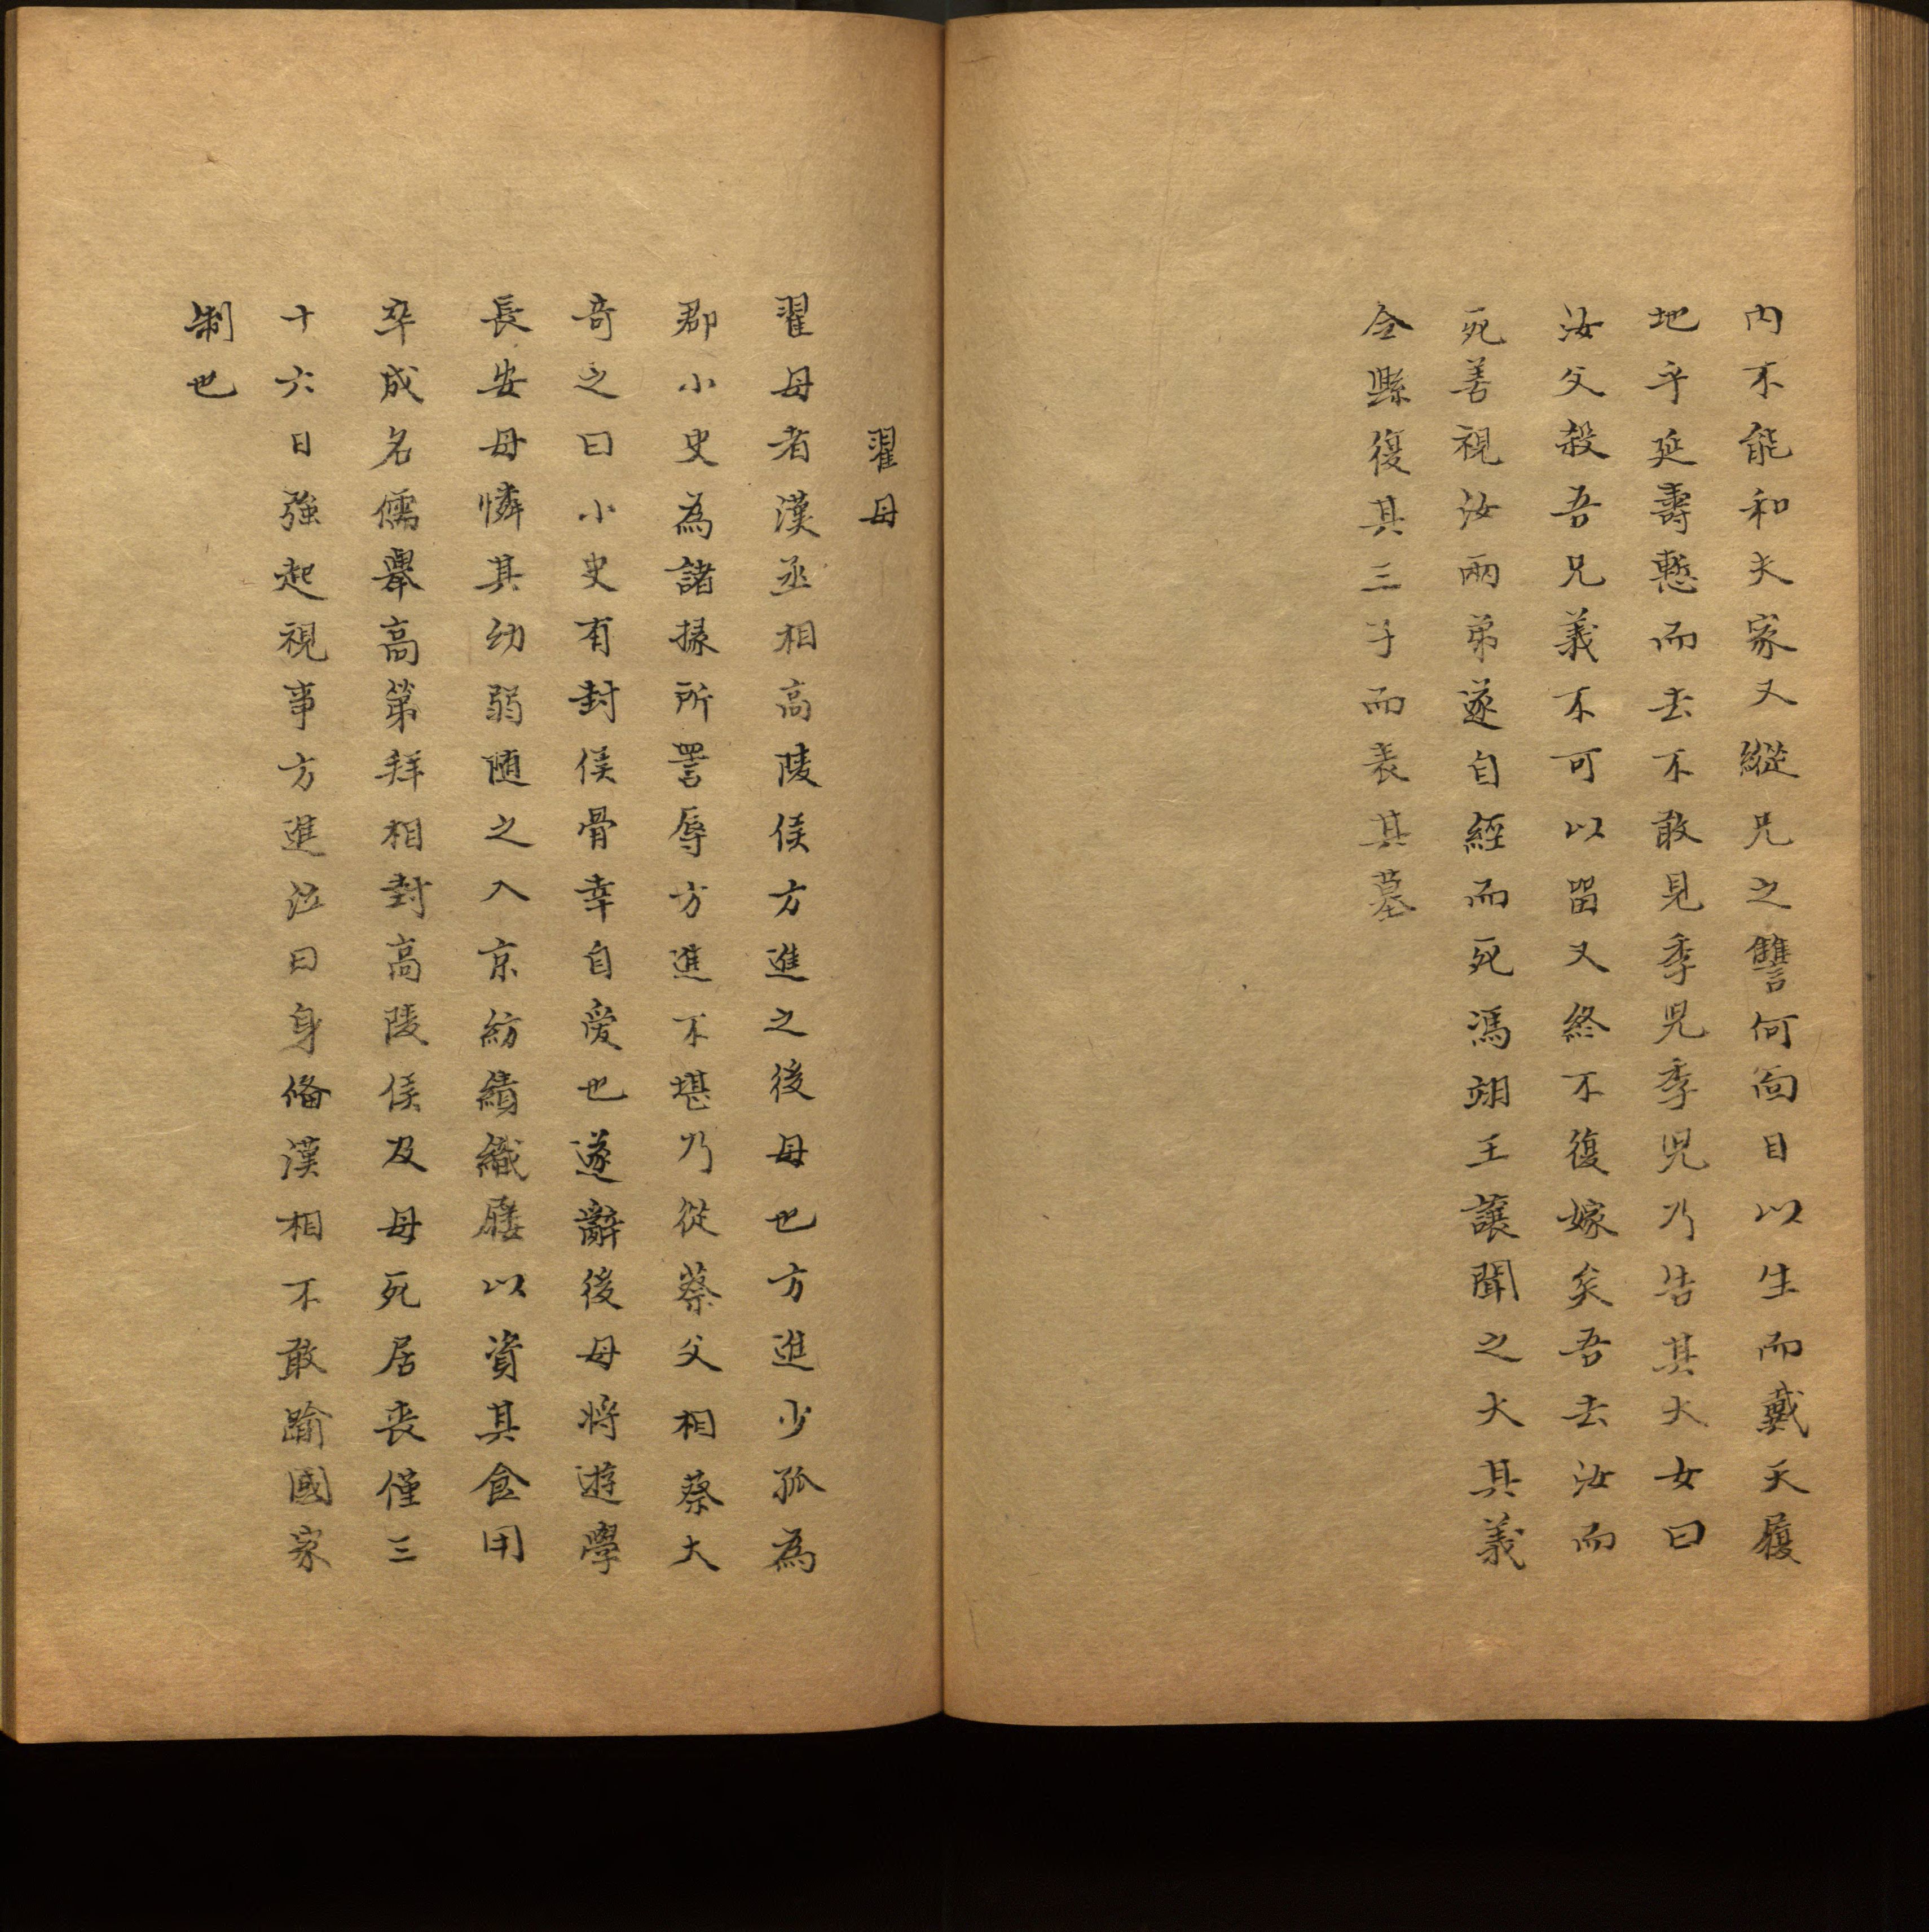 內不能和夫家又縱兄之讐何面目以生而戴天履
地乎延壽慙而去不敢見季児季児乃告其大女曰
汝父殺吾兄義不可以留又終不復嫁矣吾去汝而
死善視汝兩弟遂自經而死馮翊王讓聞之大其義
令縣復其三子而表其墓
翟母
翟母者漢丞相高陵侯方進之後母也方進少孤為
郡小史為諸掾所詈辱方進不堪乃從蔡父相蔡大
奇之曰小史有封侯骨幸自愛也遂辭後母将遊學
長安母憐其幼弱随之入京紡績織屨以資其食用
卒成名儒舉高第拜相封高陵侯及母死居喪僅三
十六日強起視事方進泣曰身俻漢相不敢踰國家
制也